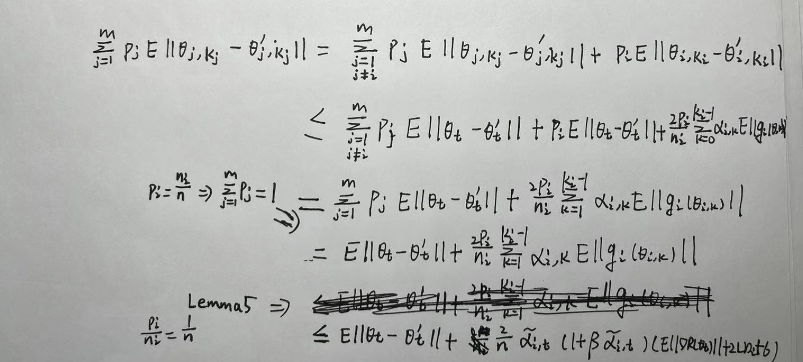 ∑_{j=1}^{m} P_j E||θ_{j,K_j} - θ'_{j,K_j}|| = ∑_{j=1, j≠i}^{m} P_j E||θ_{j,K_j} - θ'_{j,K_j}|| + P_i E||θ_{i,K_i} - θ'_{i,K_i}||
≤ ∑_{j=1, j≠i}^{m} P_j E||θ_t - θ'_t|| + P_i E||θ_t - θ'_t|| + \frac{2P_i}{n_i} ∑_{k=0}^{K_i-1} α_{i,k} E||g_i(
P_i = \frac{n_i}{n} ⇒ ∑_{j=1}^{m} P_j = 1 = ∑_{j=1}^{m} P_j E||θ_t - θ'_t|| + \frac{2P_i}{n_i} ∑_{k=1}^{K_i-1} α_{i,k} E||g_i(θ_{i,k})||
= E||θ_t - θ'_t|| + \frac{2P_i}{n_i} ∑_{k=1}^{K_i-1} α_{i,k} E||g_i(θ_{i,k})||
Lemma5 ⇒
\frac{P_i}{n_i} = \frac{1}{n} ≤ E||θ_t - θ'_t|| + \frac{2}{n} \tilde{α}_{i,t} (1+β\tilde{α}_{i,t}) (E||∇R(θ_t)|| + 2L